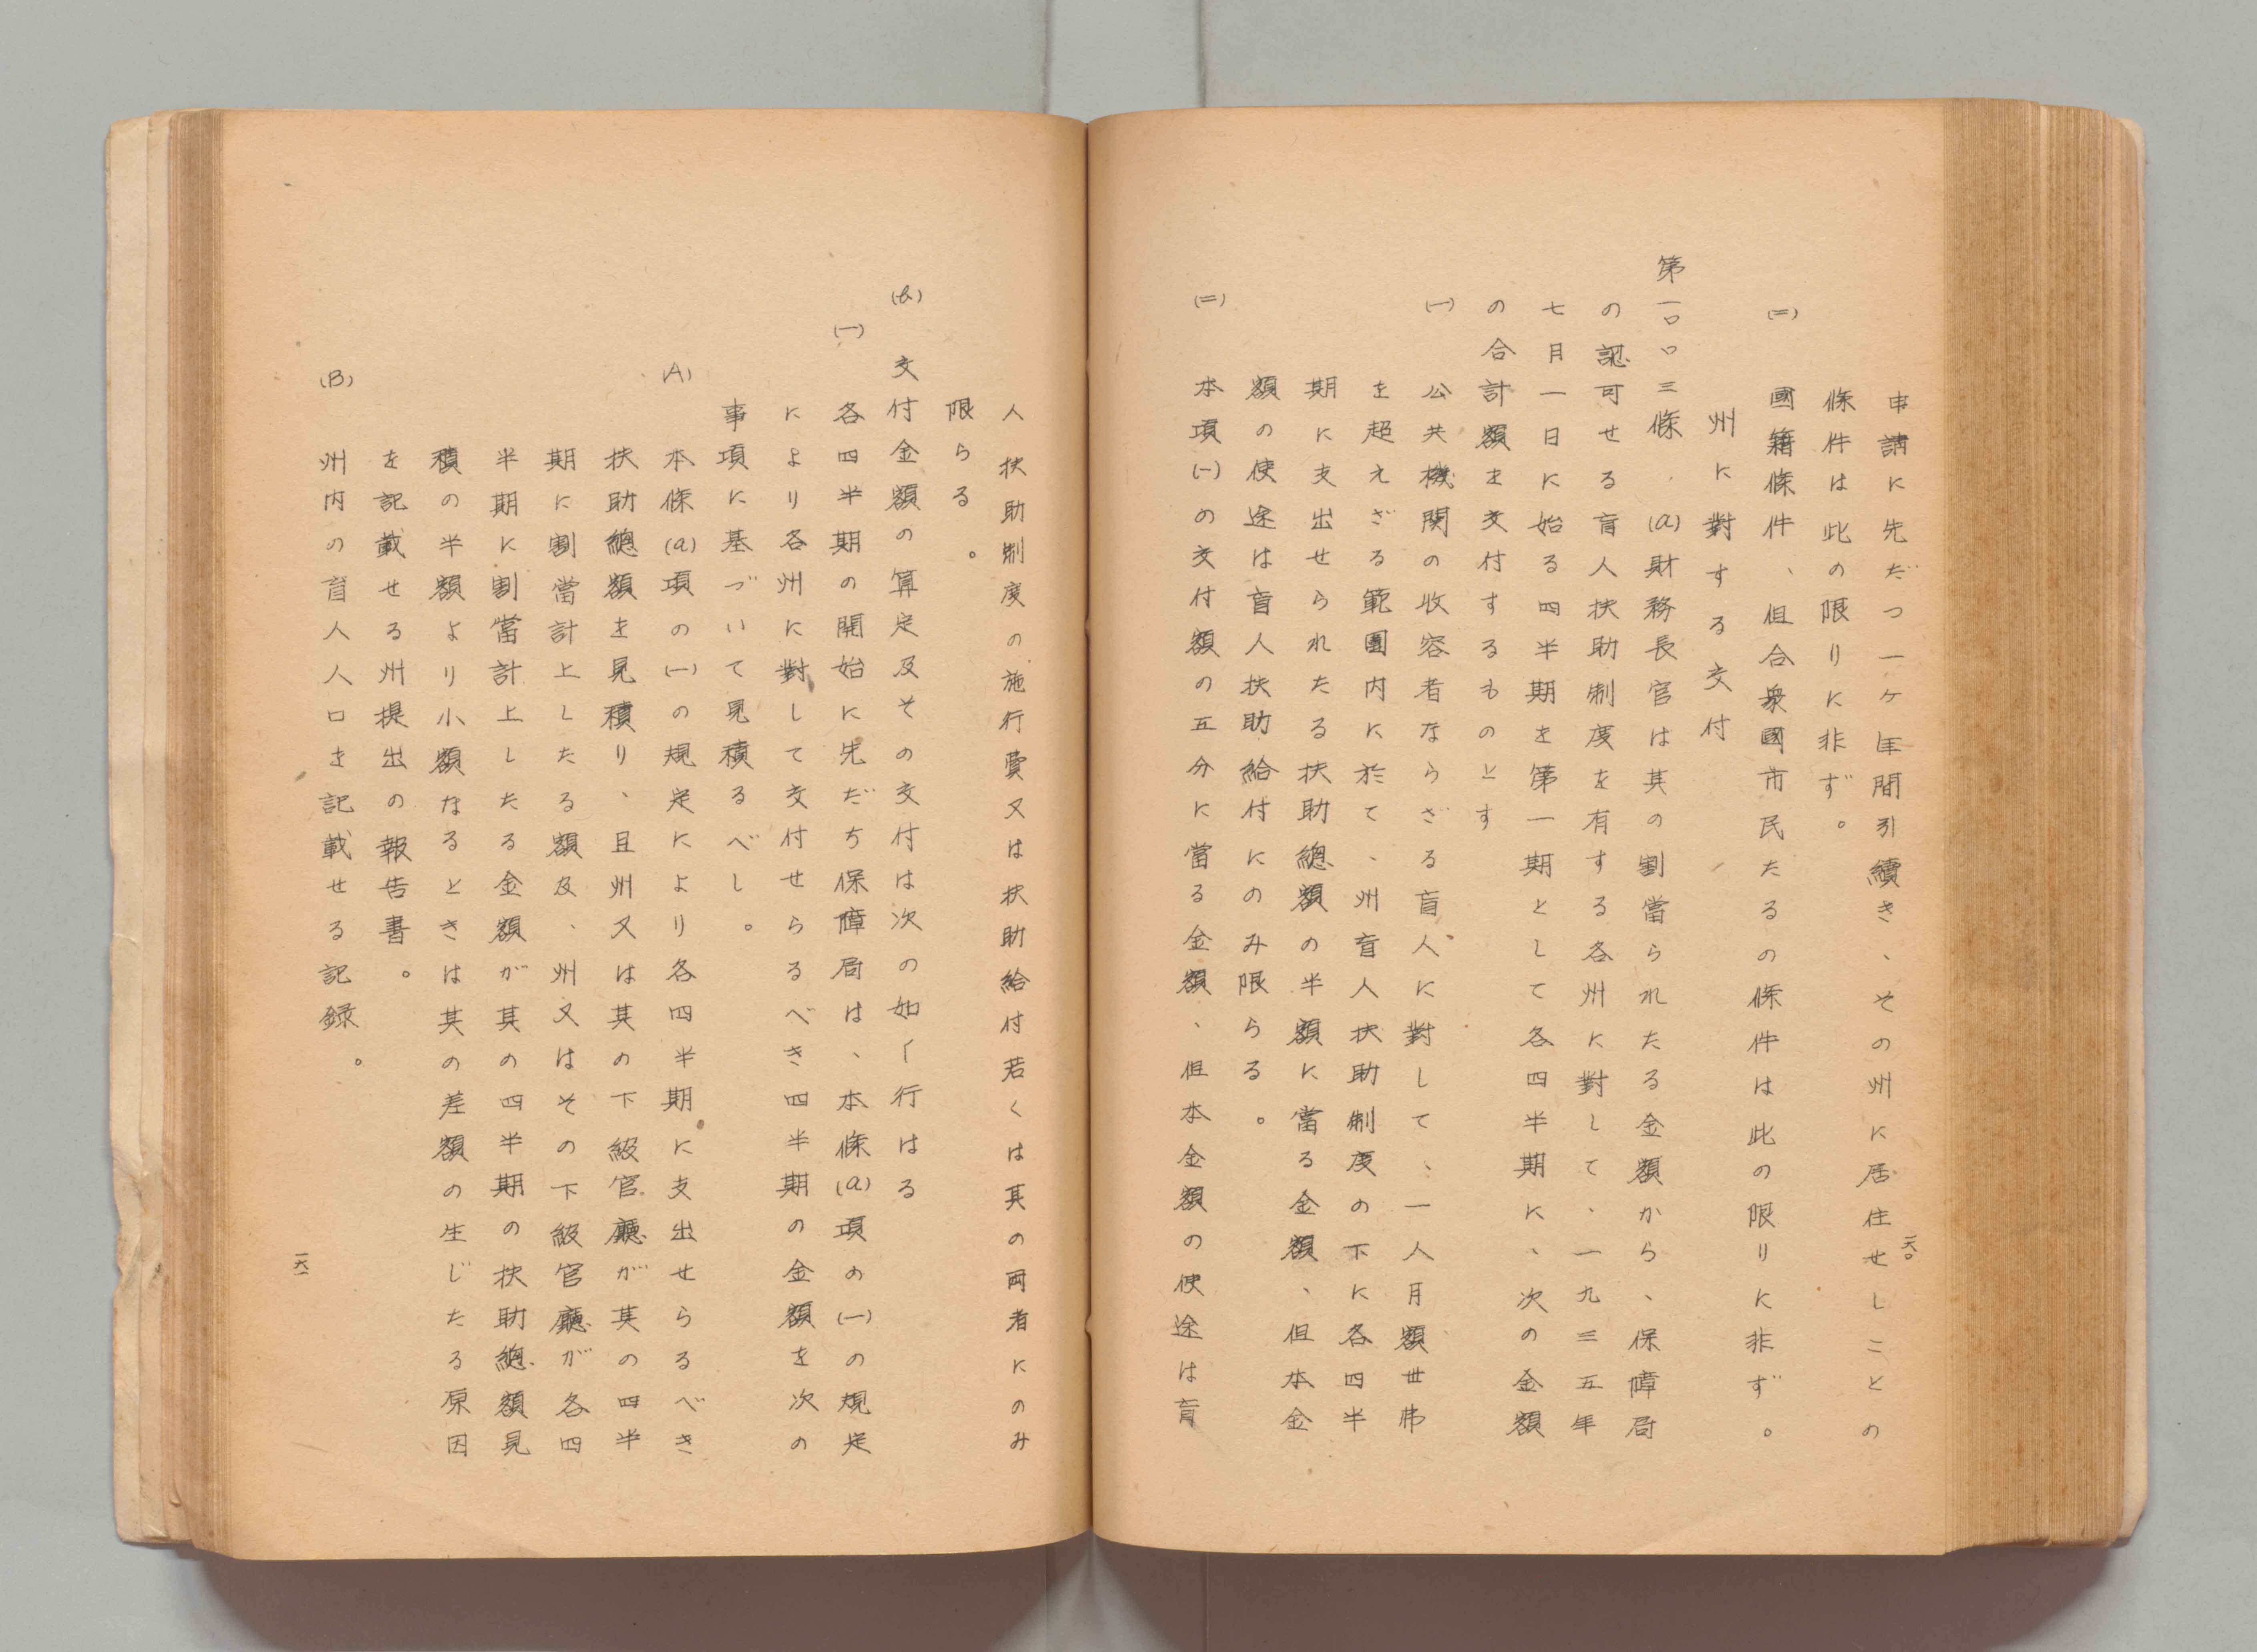 申請に先だつ一ヶ年間引續き、その州に居住せしことの
條件は此の限りに非ず。
(二) 國籍條件、但合衆國市民たるの條件は此の限りに非ず。
州に對する交付
第一〇〇三條.(a)財務長官は其の割當られたる金額から、保障局
の認可せる盲人扶助制度を有する各州に對して、一九三五年
七月一日に始る四半期を第一期として各四半期に、次の金額
の合計額を交付するものとす
(一) 公共機関の收容者ならざる盲人に對して、一人月額卅弗
を超えざる範囲内に於て、州盲人扶助制度の下に各四半
期に支出せられたる扶助總額の半額に當る金額、但本金
額の使途は盲人扶助給付にのみ限らる。
(二) 本項(一)の交付額の五分に當る金額、但本金額の使途は盲
一六〇
人扶助制度の施行費又は扶助給付若くは其の両者にのみ
限らる。
(b) 交付金額の算定及その交付は次の如く行はる
(一) 各四半期の開始に先だち保障局は、本條(a)項の(一)の規定
により各州に對して交付せらるべき四半期の金額を次の
事項に基づいて見積るべし。
(A) 本條(a)項の(一)の規定により各四半期に支出せらるべき
扶助總額を見積り、且州又は其の下級官廳が其の四半
期に割當計上したる額及、州又はその下級官廳が各四
半期に割當計上したる金額が其の四半期の扶助總額見
積の半額より小額なるときは其の差額の生じたる原因
を記載せる州提出の報告書。
(B) 州内の盲人人口を記載せる記録。
一六一